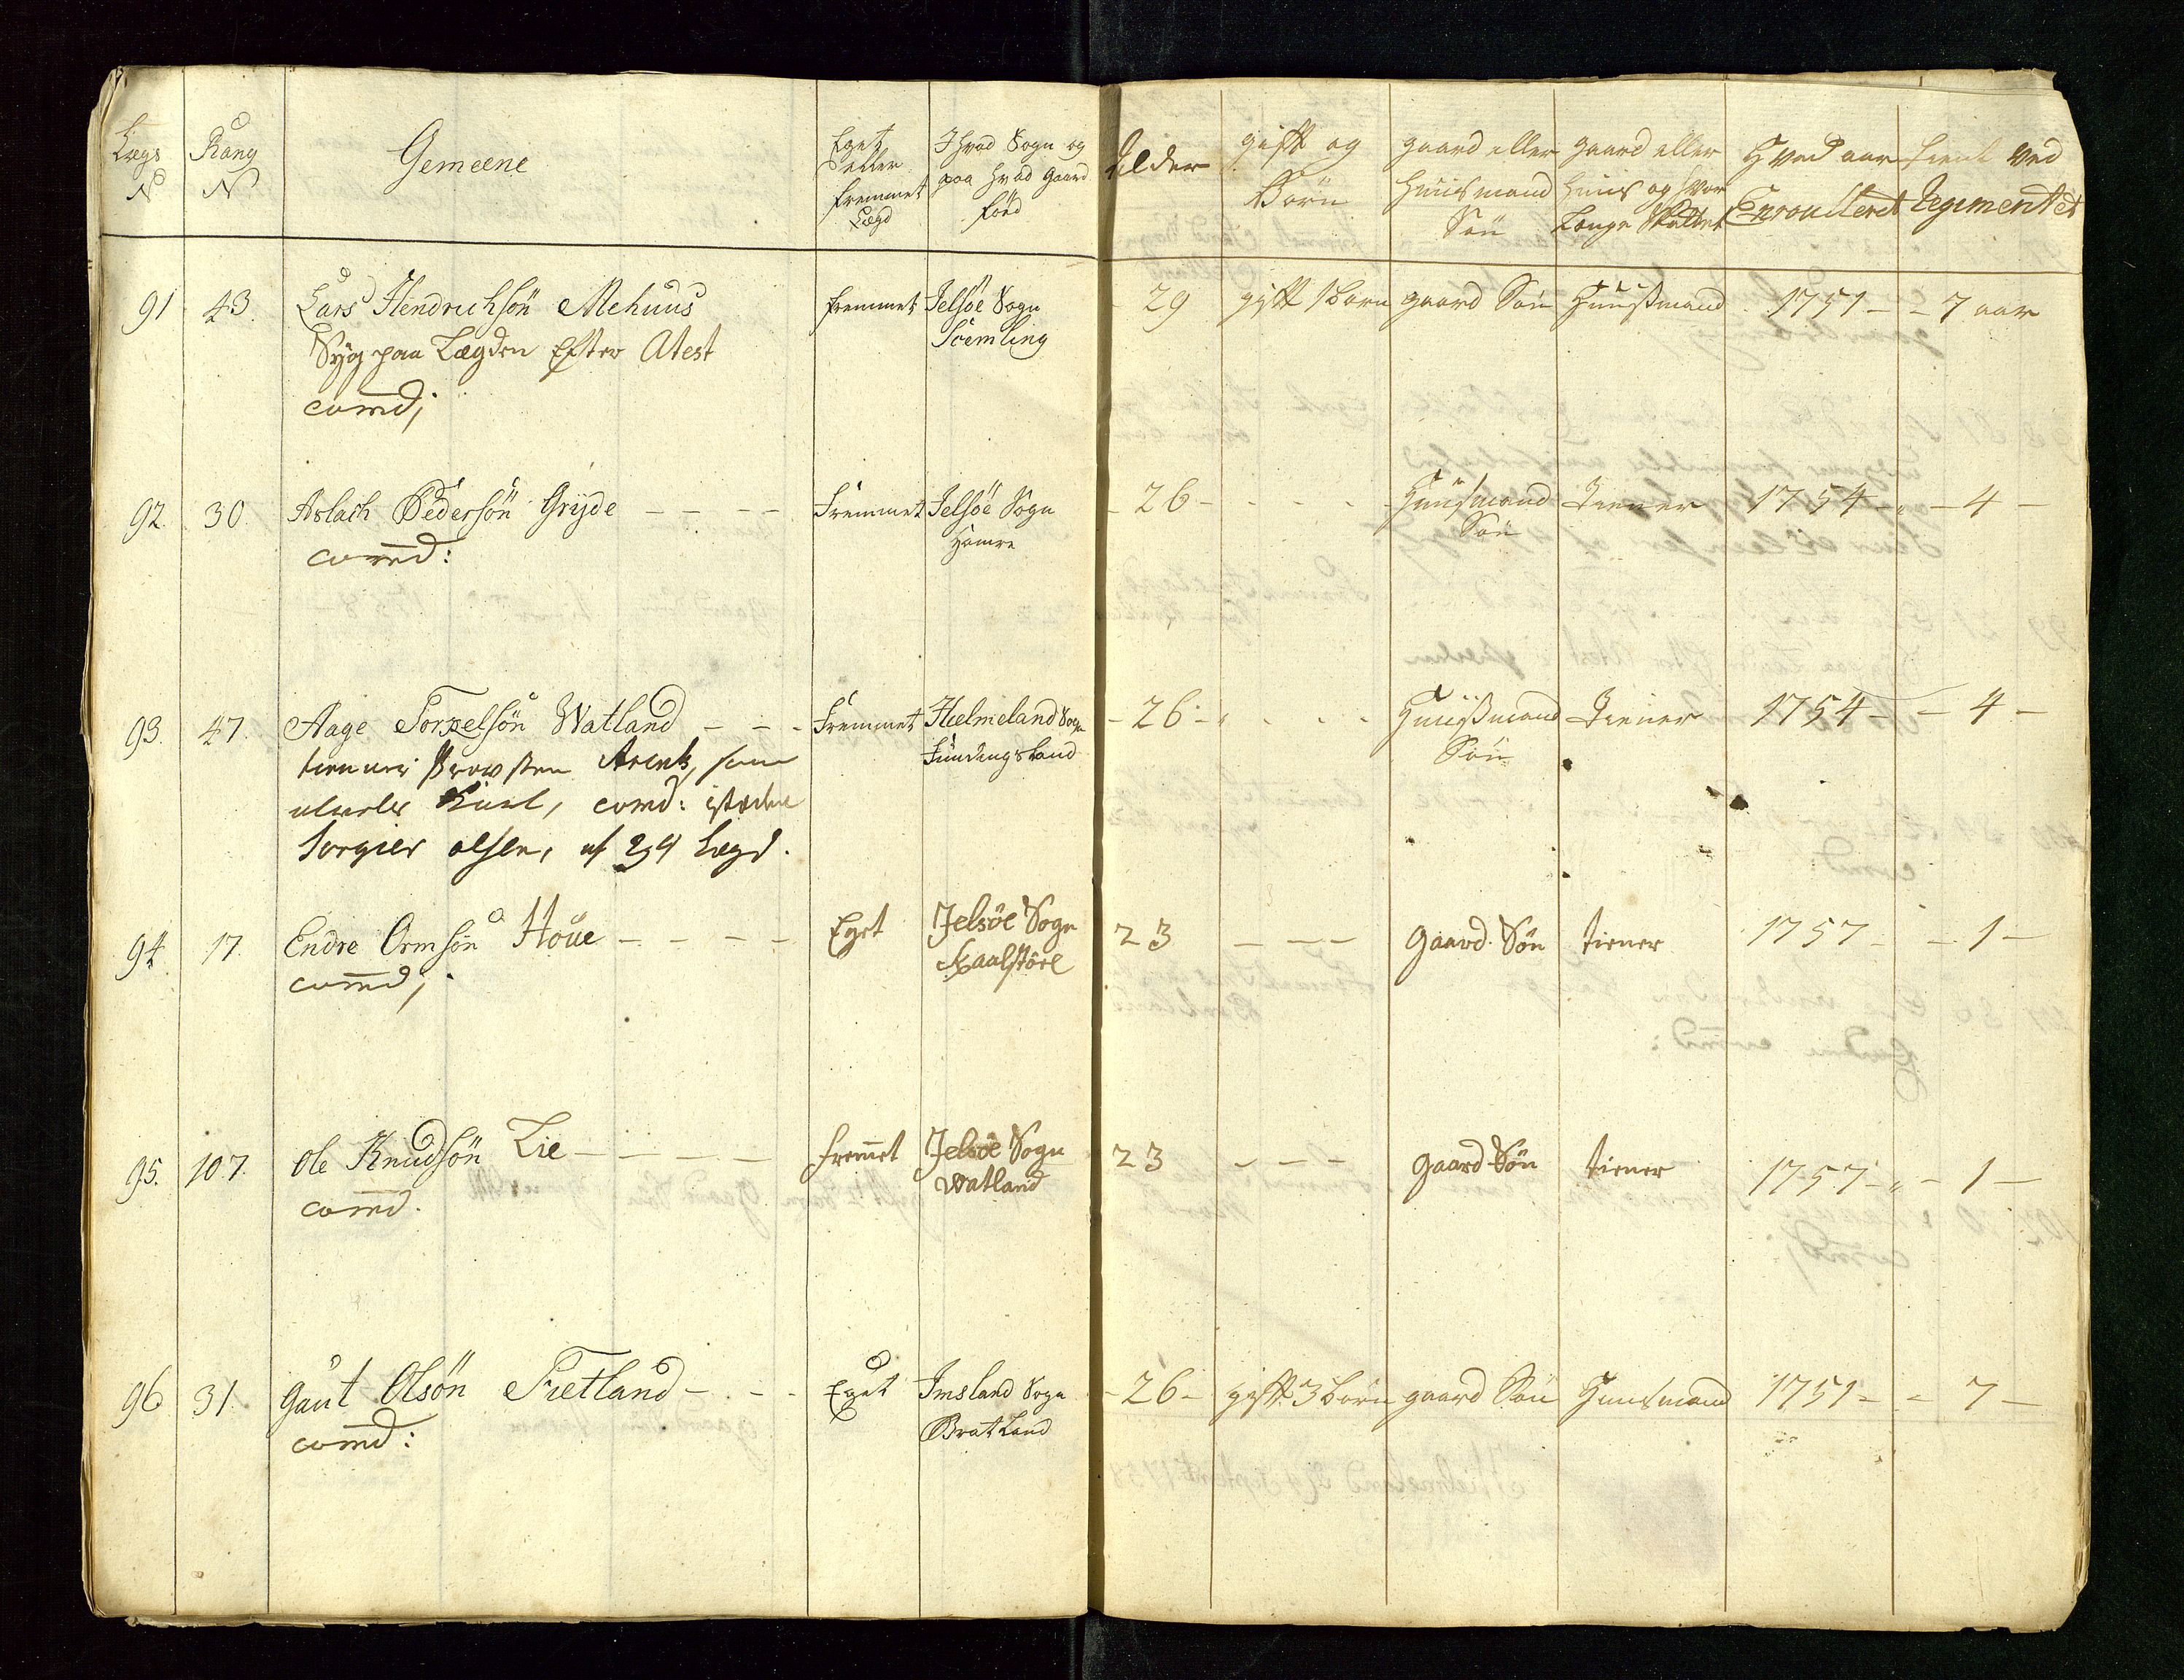 Lægs
N
Rang
N
Gemeene
Eget
eller
fremmet
Lægd
I hvad Sogn og
paa hvad Gaard
föed
Alder
gift og
Börn
gaard eller
huusmand
Sön
gaard eller
huus og hvor
Længe
Hvad aar
Enroulleret
tient ved
Regimentet
91 43. Lars Hendrichsön Mehuus fremmet Jelsöe Sogn 29 gift 1 barn gaard Sön Huusmand 1751 - - 7 aar
Syg paa Lægden Efter Atest Söemling
comd;
92. 30. Aslach Pedersön Gryde - - - - Fremmet Jelsöe Sogn - 26 - - - - Huusmand Tiener 1754 - - 4 -
comd: Hamre Sön
93. 47. Aage Torkelsön Watland - - - Fremmet Hielmeland Sogn - 26 - - - - Huusmand Tiener 1754 - - 4 -
tienner Provsten Arentz, som Fundingsland Sön
comd: istæden
Torgier olsen, af 39 Lægd.
94. 17. Endre Ormsön Höue - - - - Eget Jelsöe Sogn 23 - - - Gaard Sön tiener 1757 - - 1 -
comd; Kaalstöel
95. 107. Ole Knudsön Lie - - - - - fremmet Jelsöe Sogn 23 - - - Gaard Sön tiener 1757 - - 1 -
comd. Watland
96 31. Gaut Olsön Tietland - - - Eget Imsland Sogn - 26 - gift 3 börn gaard Sön Huusmand 1751 - - 7 -
comd: Bratland